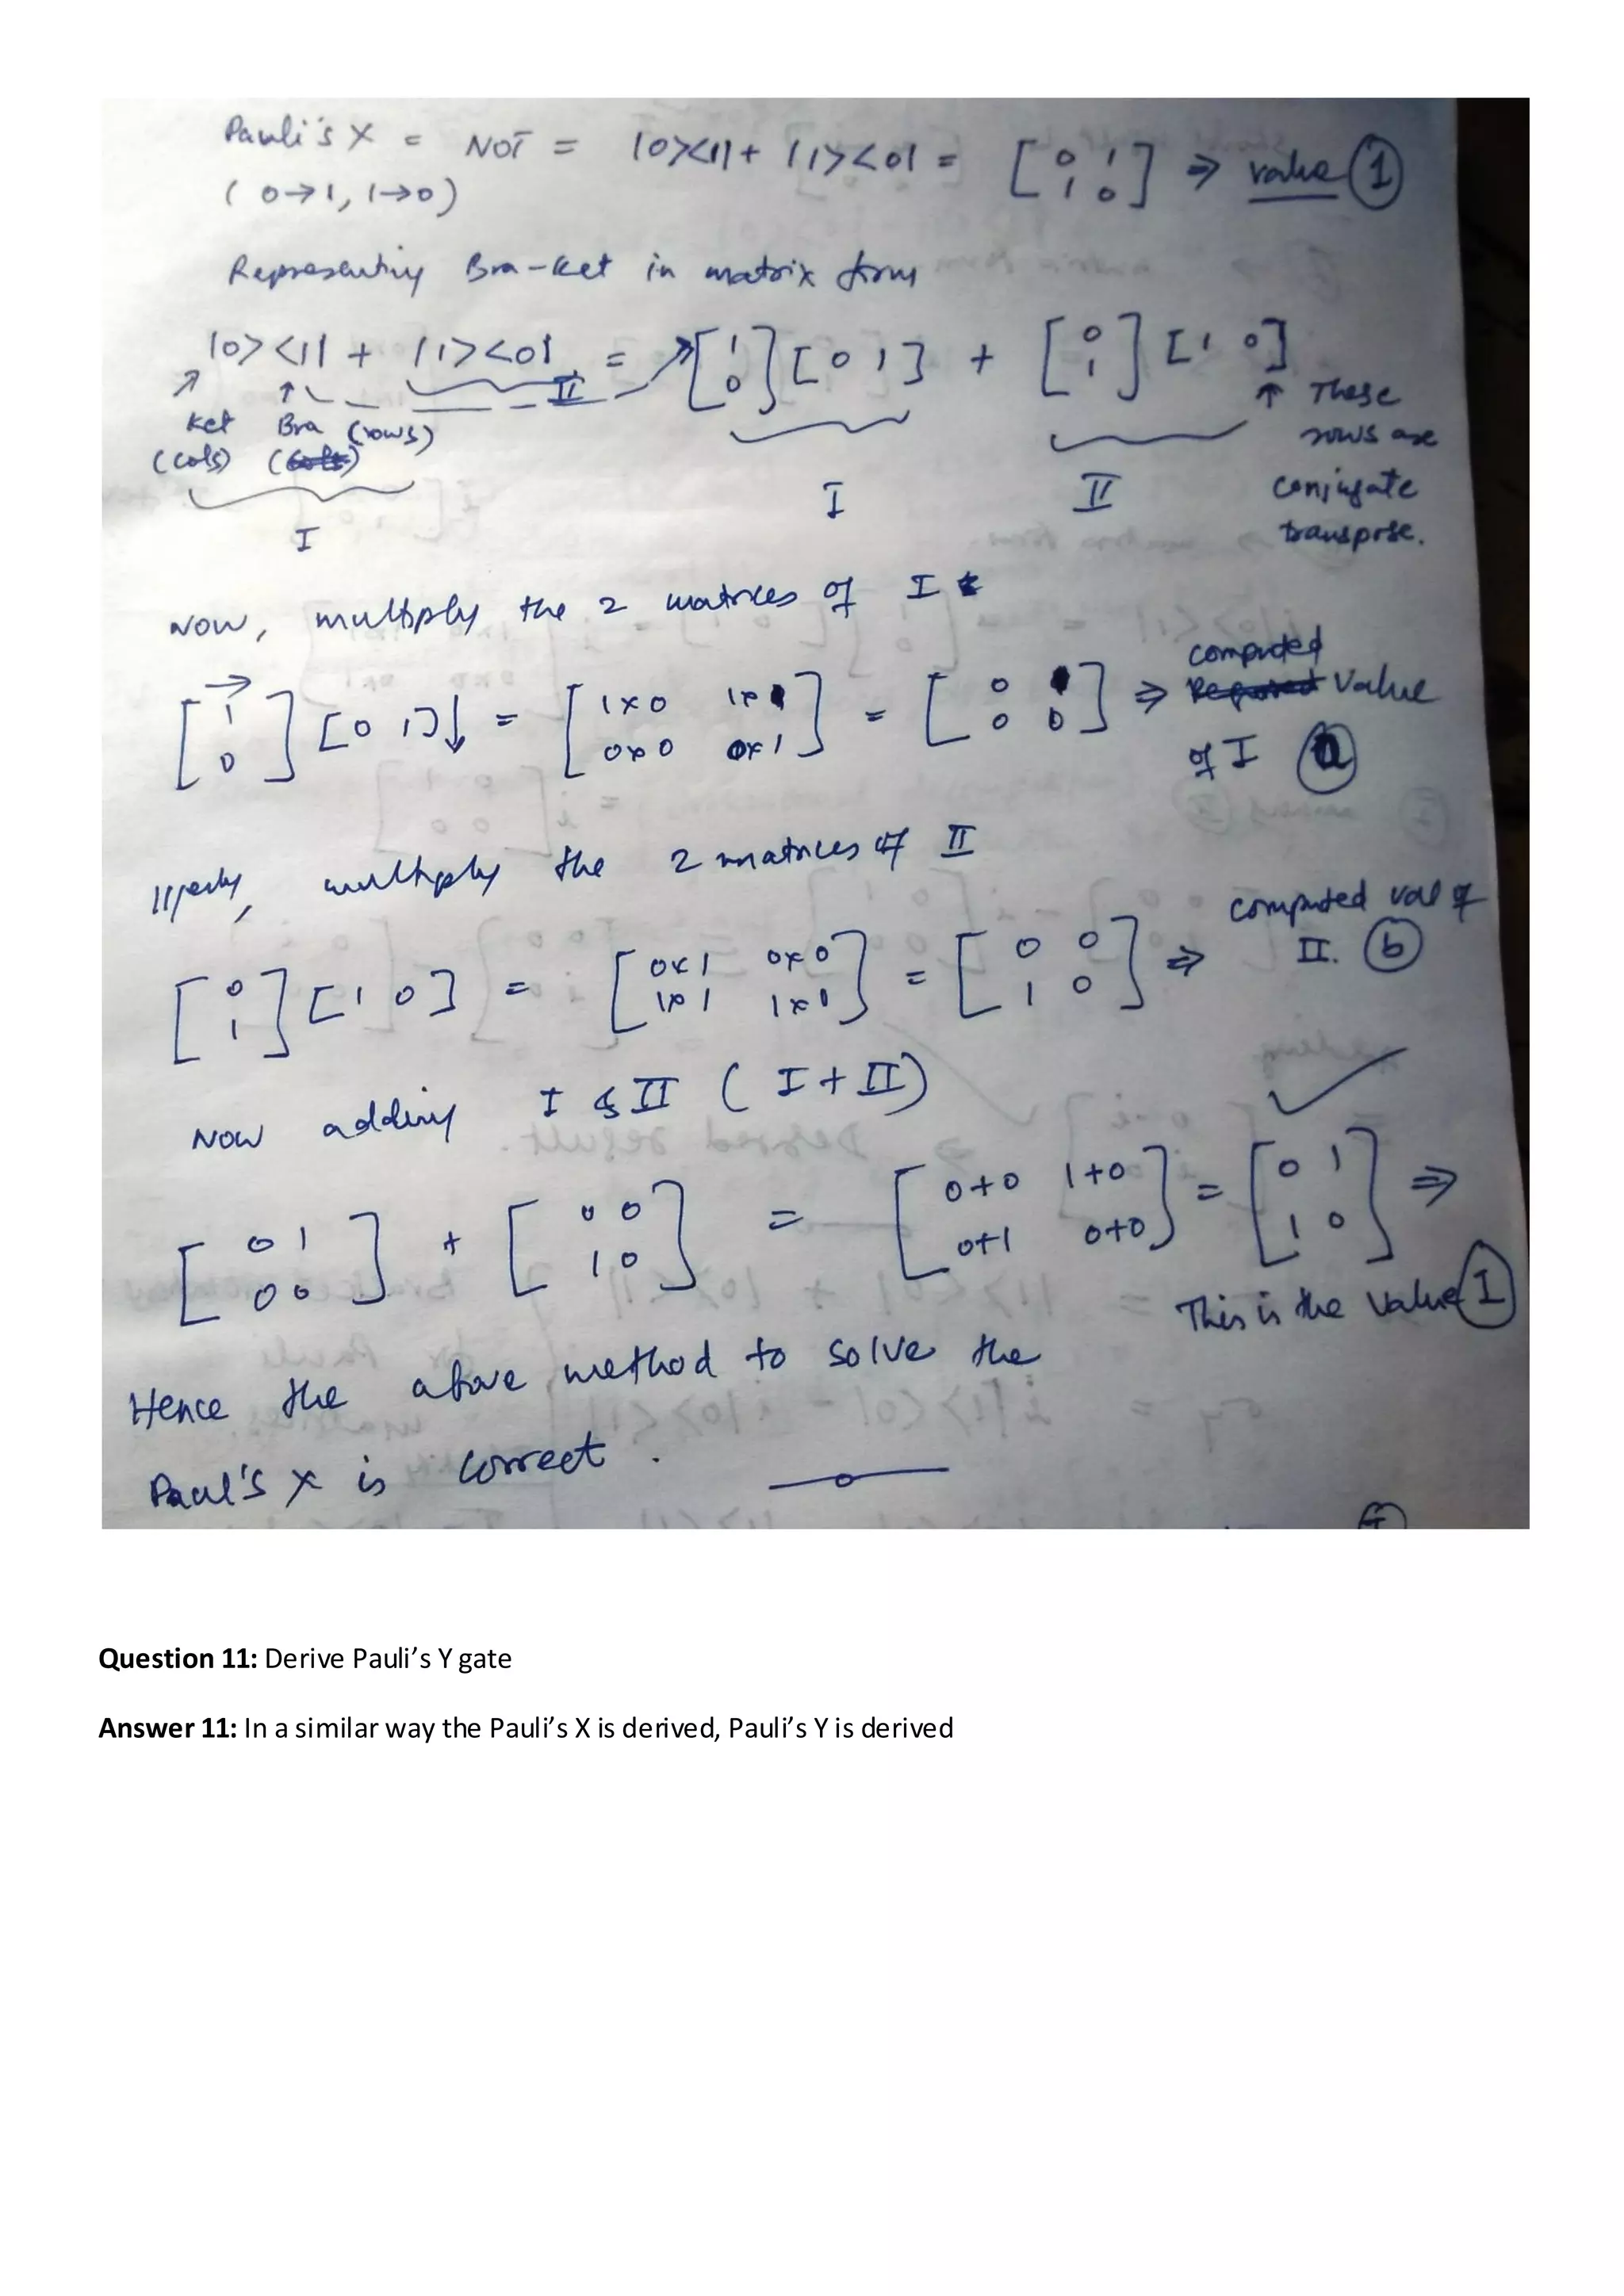 Pauli's X = NOT = |0><1| + |1><0| = [0 1 1 0] ⇒ value ①
(0→1, 1→0)
Representing Bra-Ket in matrix form
|0><1| + |1><0| = [1 0] [0 1] + [0 1] [1 0]
II
↑ These
rows are
conjugate
transpose.
Ket Bra (rows)
(cols)
I
I
II
Now, multiply the 2 matrices of I
[1 0] [0 1] = [1x0 1x1 0x0 0x1] = [0 1 0 0] ⇒ computed Value
of I ⓐ
llrly, multiply the 2 matrices of II
[0 1] [1 0] = [0x1 0x0 1x1 1x0] = [0 0 1 0] ⇒ computed val of
II. ⓑ
Now adding I & II (I + II)
[0 1 0 0] + [0 0 1 0] = [0+0 1+0 0+1 0+0] = [0 1 1 0] ⇒
This is the Value Ⓘ
Hence the above method to solve the
Paul's X is correct.
Question 11: Derive Pauli’s Y gate
Answer 11: In a similar way the Pauli’s X is derived, Pauli’s Y is derived